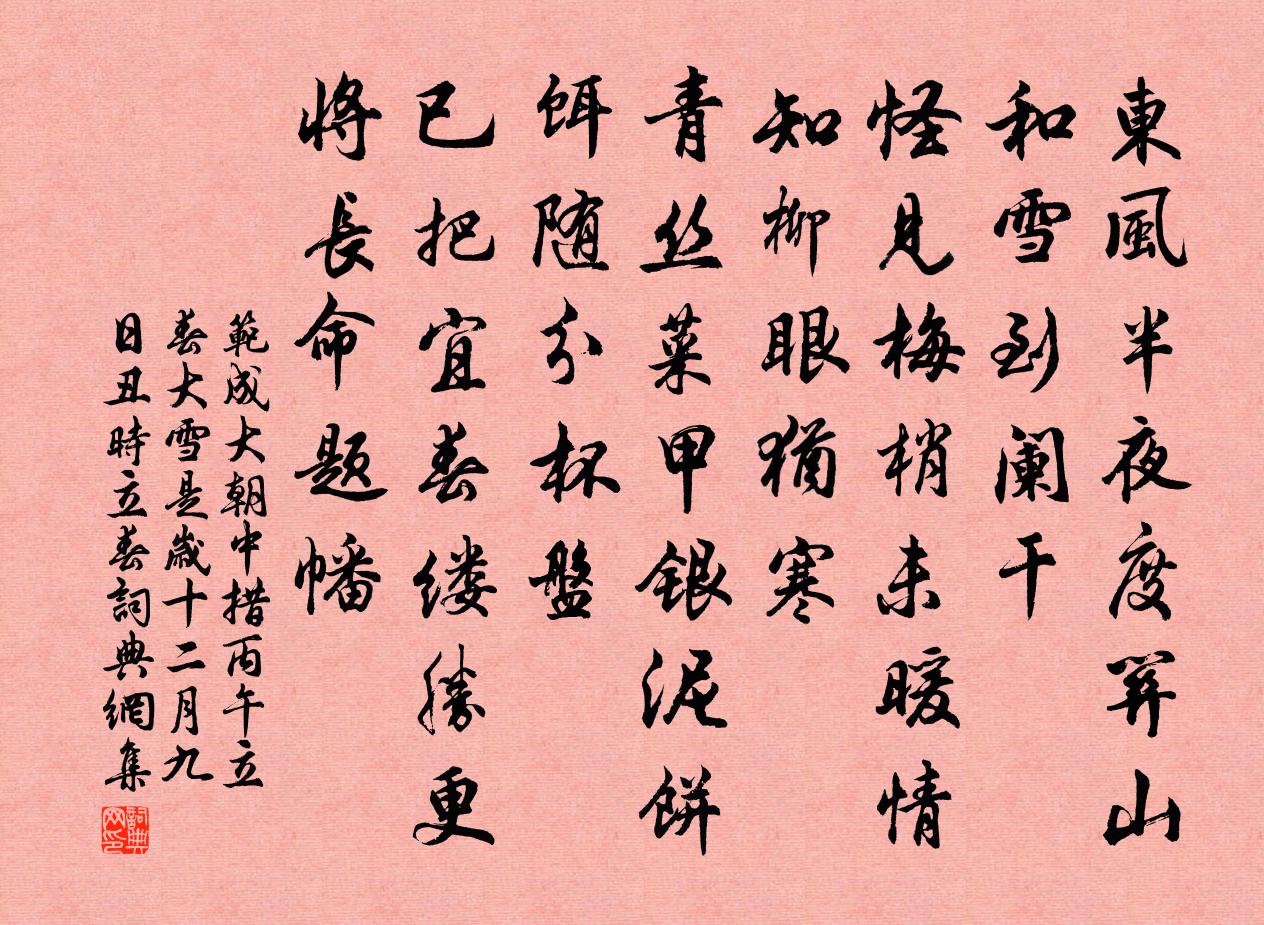 東風半夜度關山
和雪到闌干
怪見梅梢未暖情
知柳眼猶寒
青丝菜甲銀泥餅
餌随分杯盤
已把宜春缕勝更
將長命题幡
範成大朝中措丙午立
春大雪是歲十二月九
日丑時立春詞典網集
詞典网印